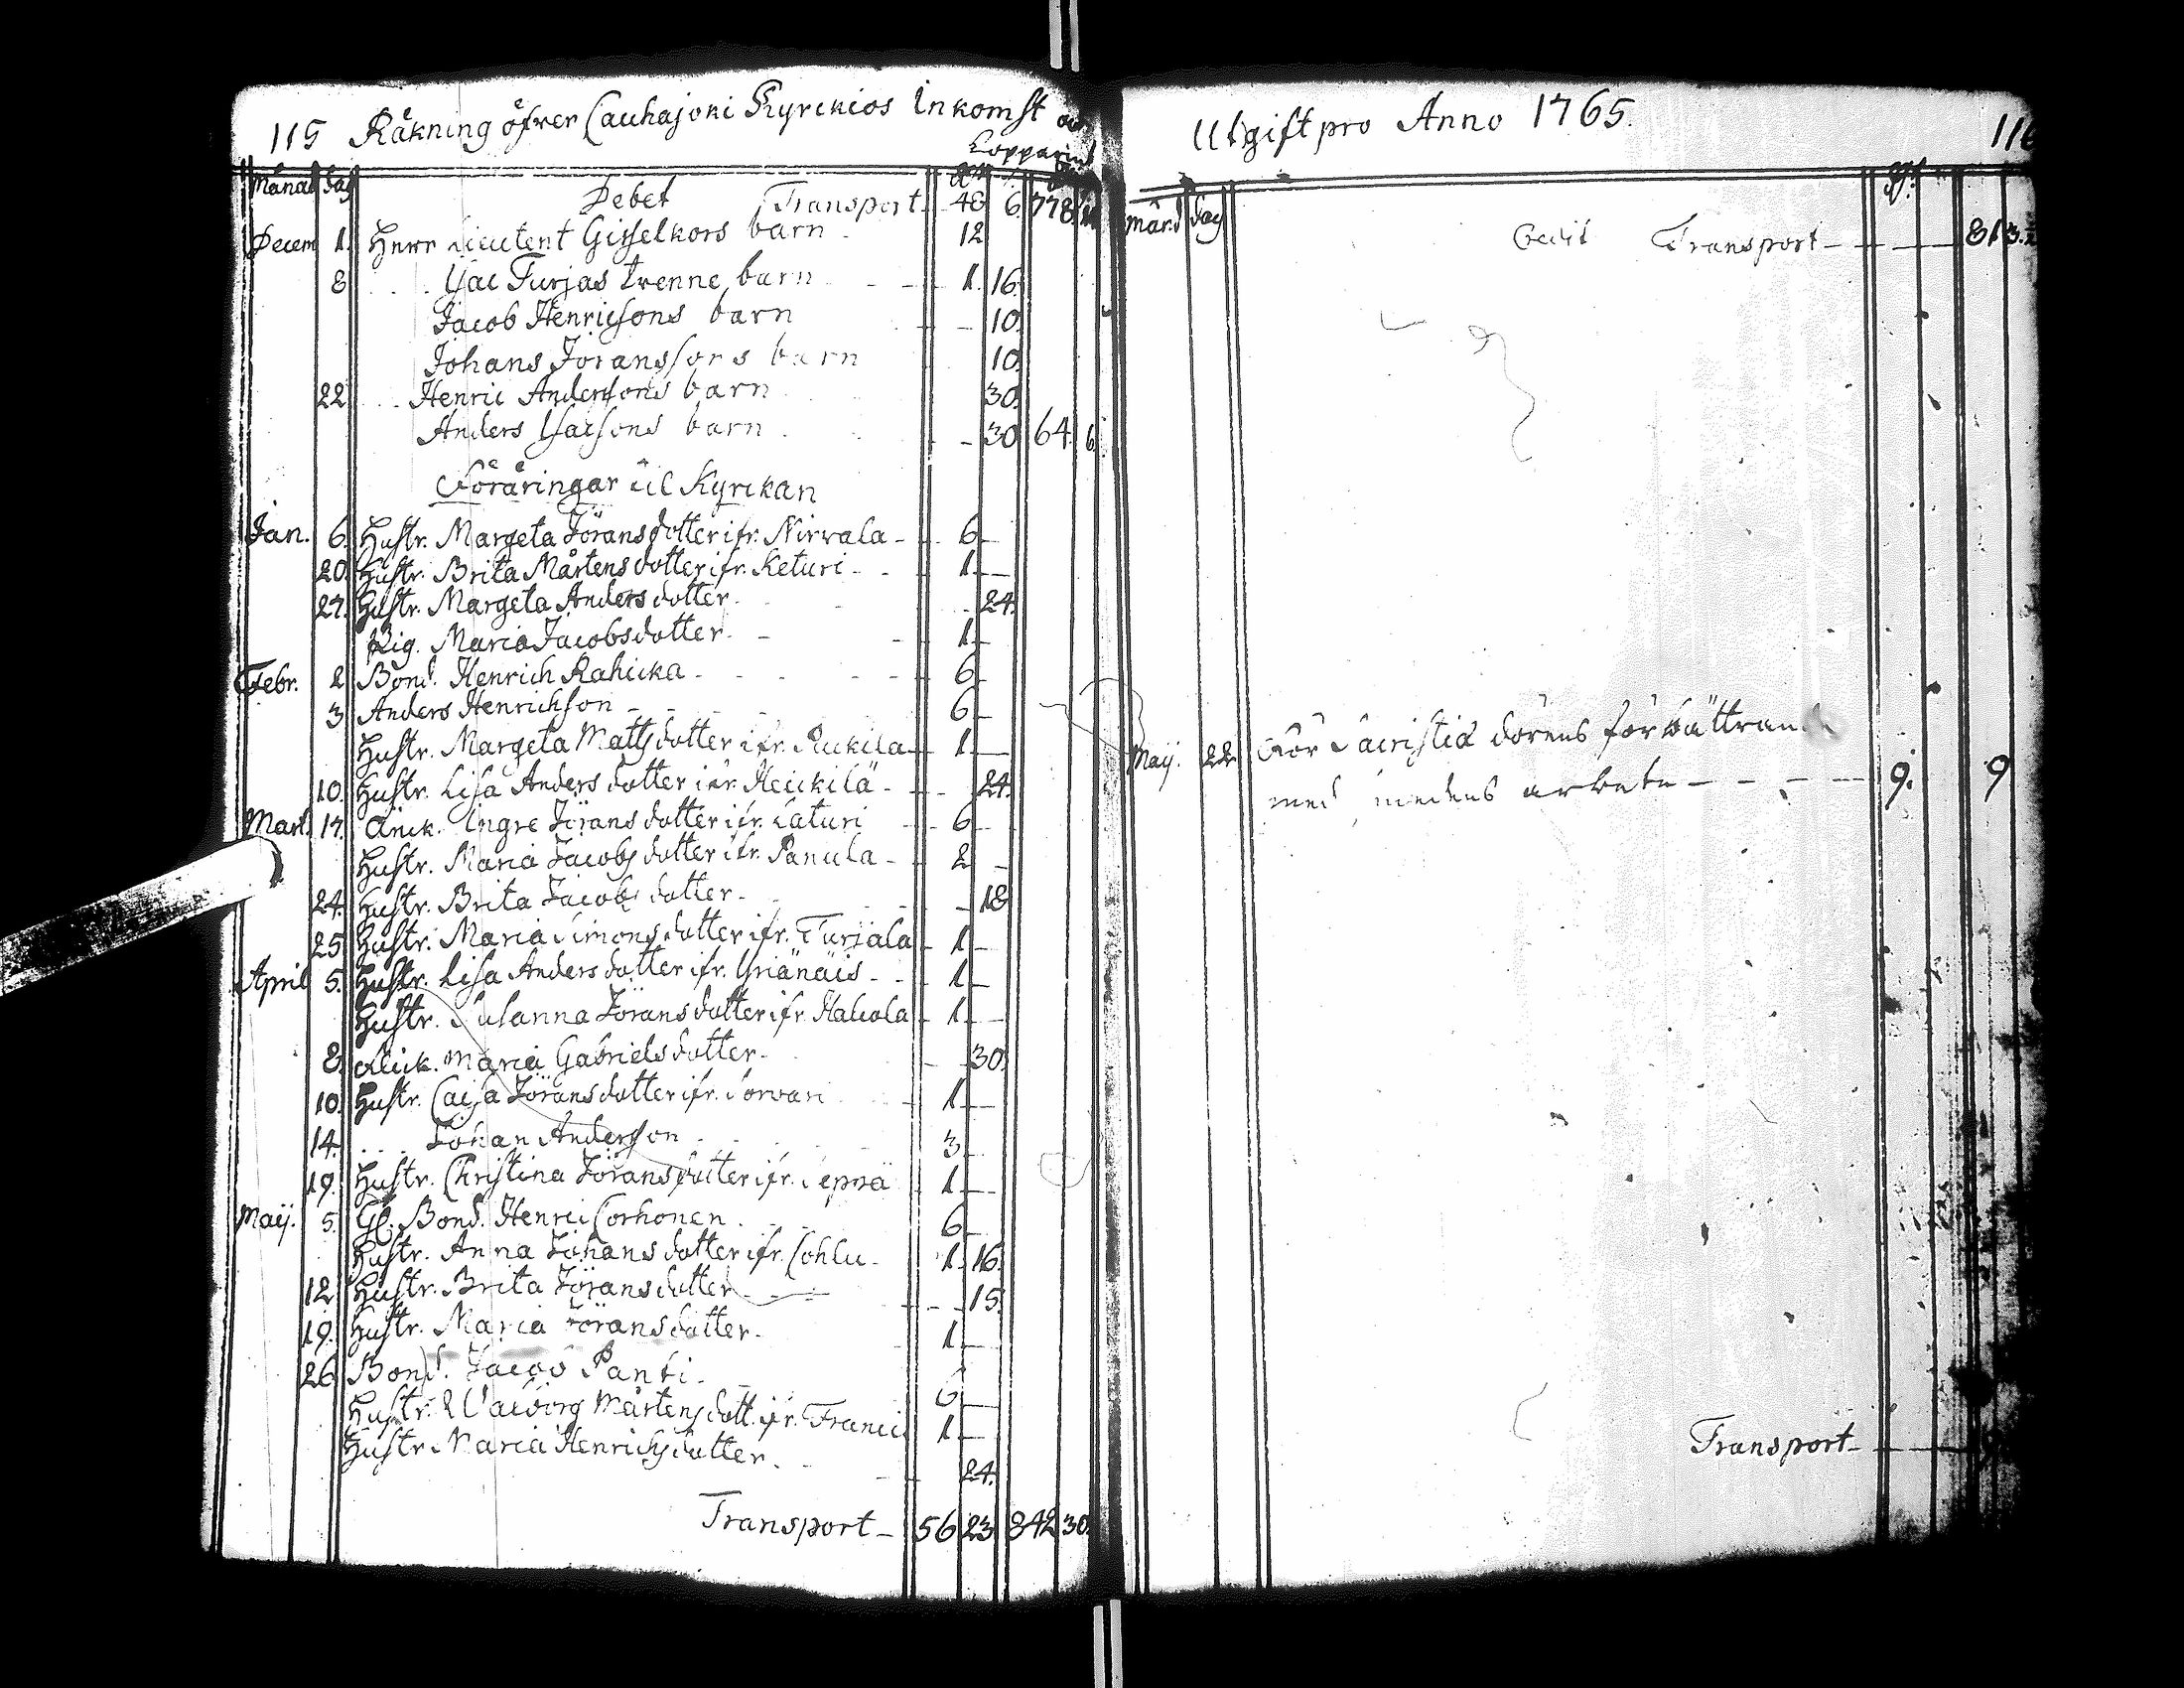 115 Räkning öfwer Cauhajoki Kyrckios Inkomst och
Kopparmt
Månad dag Debet Transport 48 6 778
Decem 1. Herr Lieutent Gisselkors barn 12
8 Isac Turjas twenne barn 1. 16.
Jacob Henricsons barn 10.
Johans Jöranssons barn 10.
22 Henric Andersons barn 30.
Anders Isacsons barn 30 64. 6.
Föräringar til Kyrckan
Jan. 6. Hustr. Margeta Jöransdotter ifr. Nirvala 6
20. Hustr. Brita Mårtensdotter ifr. Keturi 1
27. Hustr. Margeta Andersdotter 24.
Pig. Maria Jacobsdotter 1
Febr. 2 Bond. Henrich Rahicka 6
3 Anders Henrickson 6
Hustr. Margeta Mattsdotter ifr. Peckila 1
10. Hustr. Lisa Andersdotter ifr. Heickilä 24.
Mart. 17. Änck. Ingre Jöransdotter ifr. Laturi 6
Hustr. Maria Jacobsdotter ifr. Panula 2
24. Hustr. Brita Jacobsdotter 18
25 Hustr. Maria Simonsdotter ifr. Turjala 1
April 5. Hustr. Lisa Andersdotter ifr. Yriänäis 1
Hustr. Susanna Jöransdotter ifr. Hakola 1
8. Änck. Maria Gabrielsdotter 30.
10. Hustr. Caisa Jöransdotter ifr. Sorvari 1
14. Johan Anderson 3
19. Hustr. Christina Jöransdotter ifr. Seppä 1
Maij. 5. Gl. Bond. Henric Corhonen 6
Hustr. Anna Johansdotter ifr. Cohlu 1. 16.
12 Hustr. Brita Jöransdotter 15.
19. Hustr. Maria Jöransdotter 1
26 Bond. Jacob Panti 6
Hustr. Walborg Mårtensdott. ifr. Franci 1
Hustr. Maria Henricsdotter 24.
Transport 56 23 842 30.
Utgift pro Anno 1765. 116
Mån.d dag Credit Transport 81 3.
Maij. 22 För Sacristie dörens förbättrande
med smedens arbete 9. 9
Transport